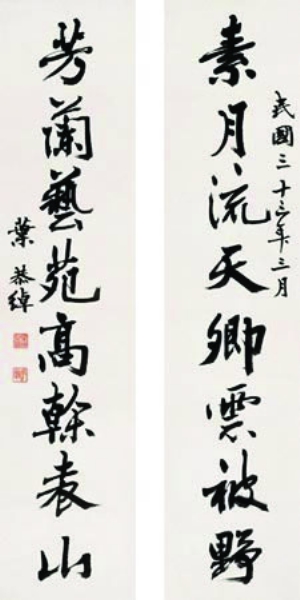 民國三十三年三月
素月流天卿雲被野
芳蘭藝苑高榦表山
葉恭綽